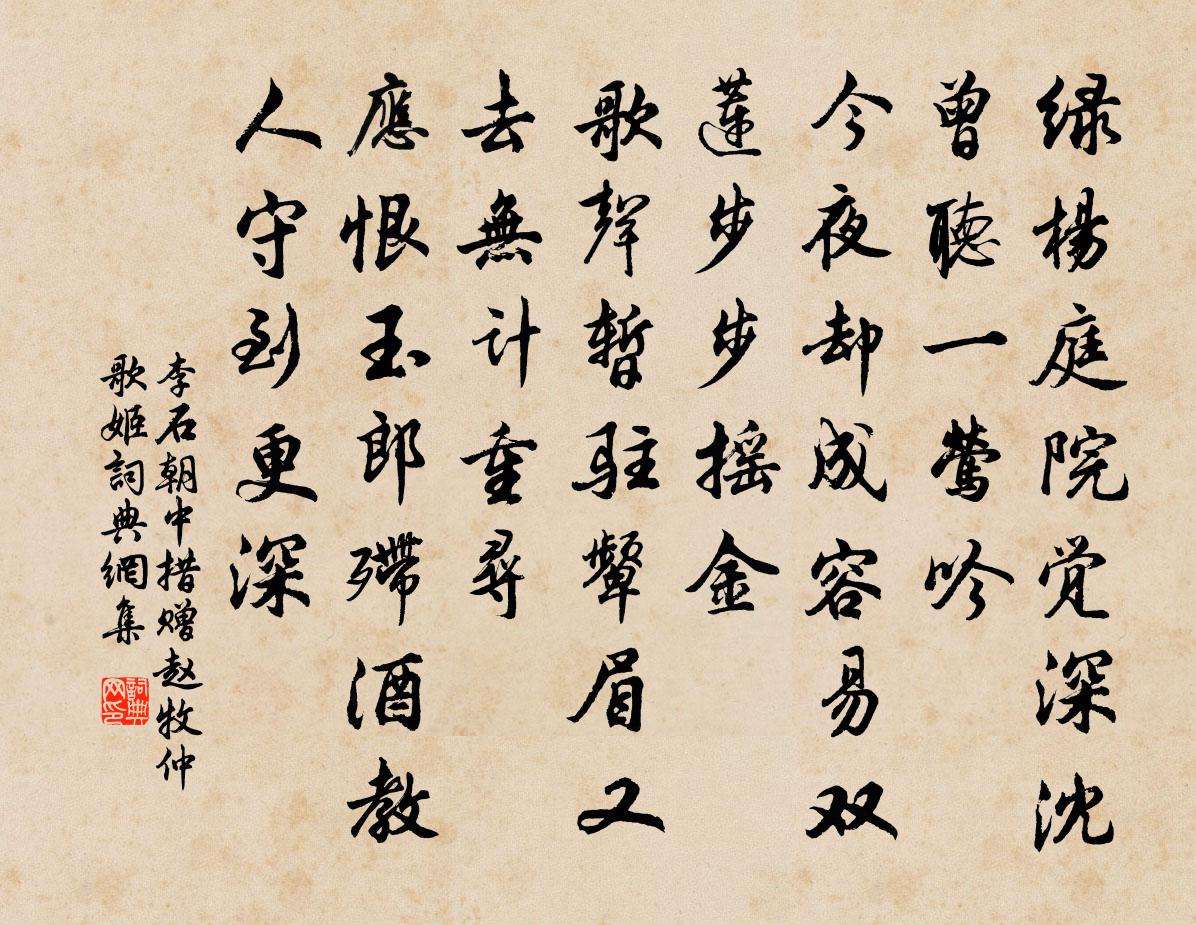 绿楊庭院觉深沈
曾聽一鶯吟
今夜却成容易双
蓮步步摇金
歌聲暫駐顰眉又
去無计重尋
應恨玉郎殢酒教
人守到更深
李石朝中措赠赵牧仲
歌姬詞典網集
詞典网印